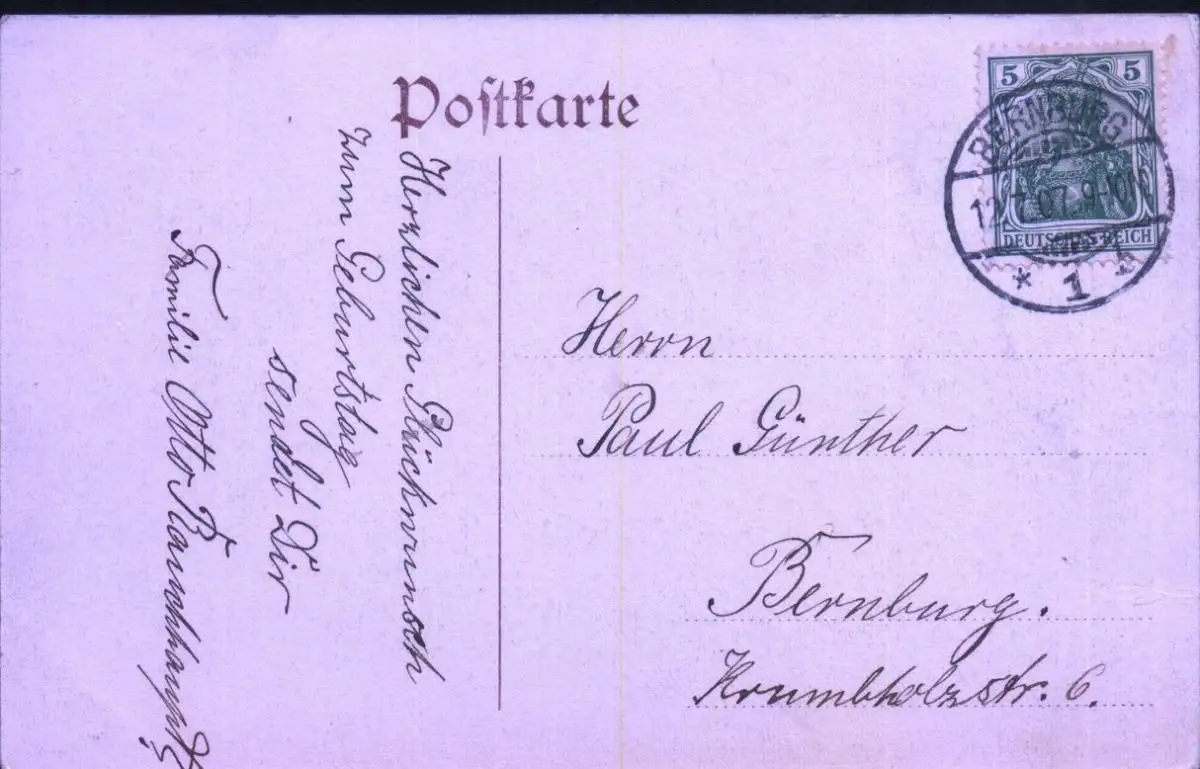 Postkarte
Herzlichen Glückwunsch
zum Geburtstag
sendet Dir
Familie Otto Rauchhaupt
5 5
DEUTSCHES REICH
BERNBURG
12.7.07.9-10N
* 1 b
Herrn
Paul Günther
Bernburg.
Krumbholzstr. 6.